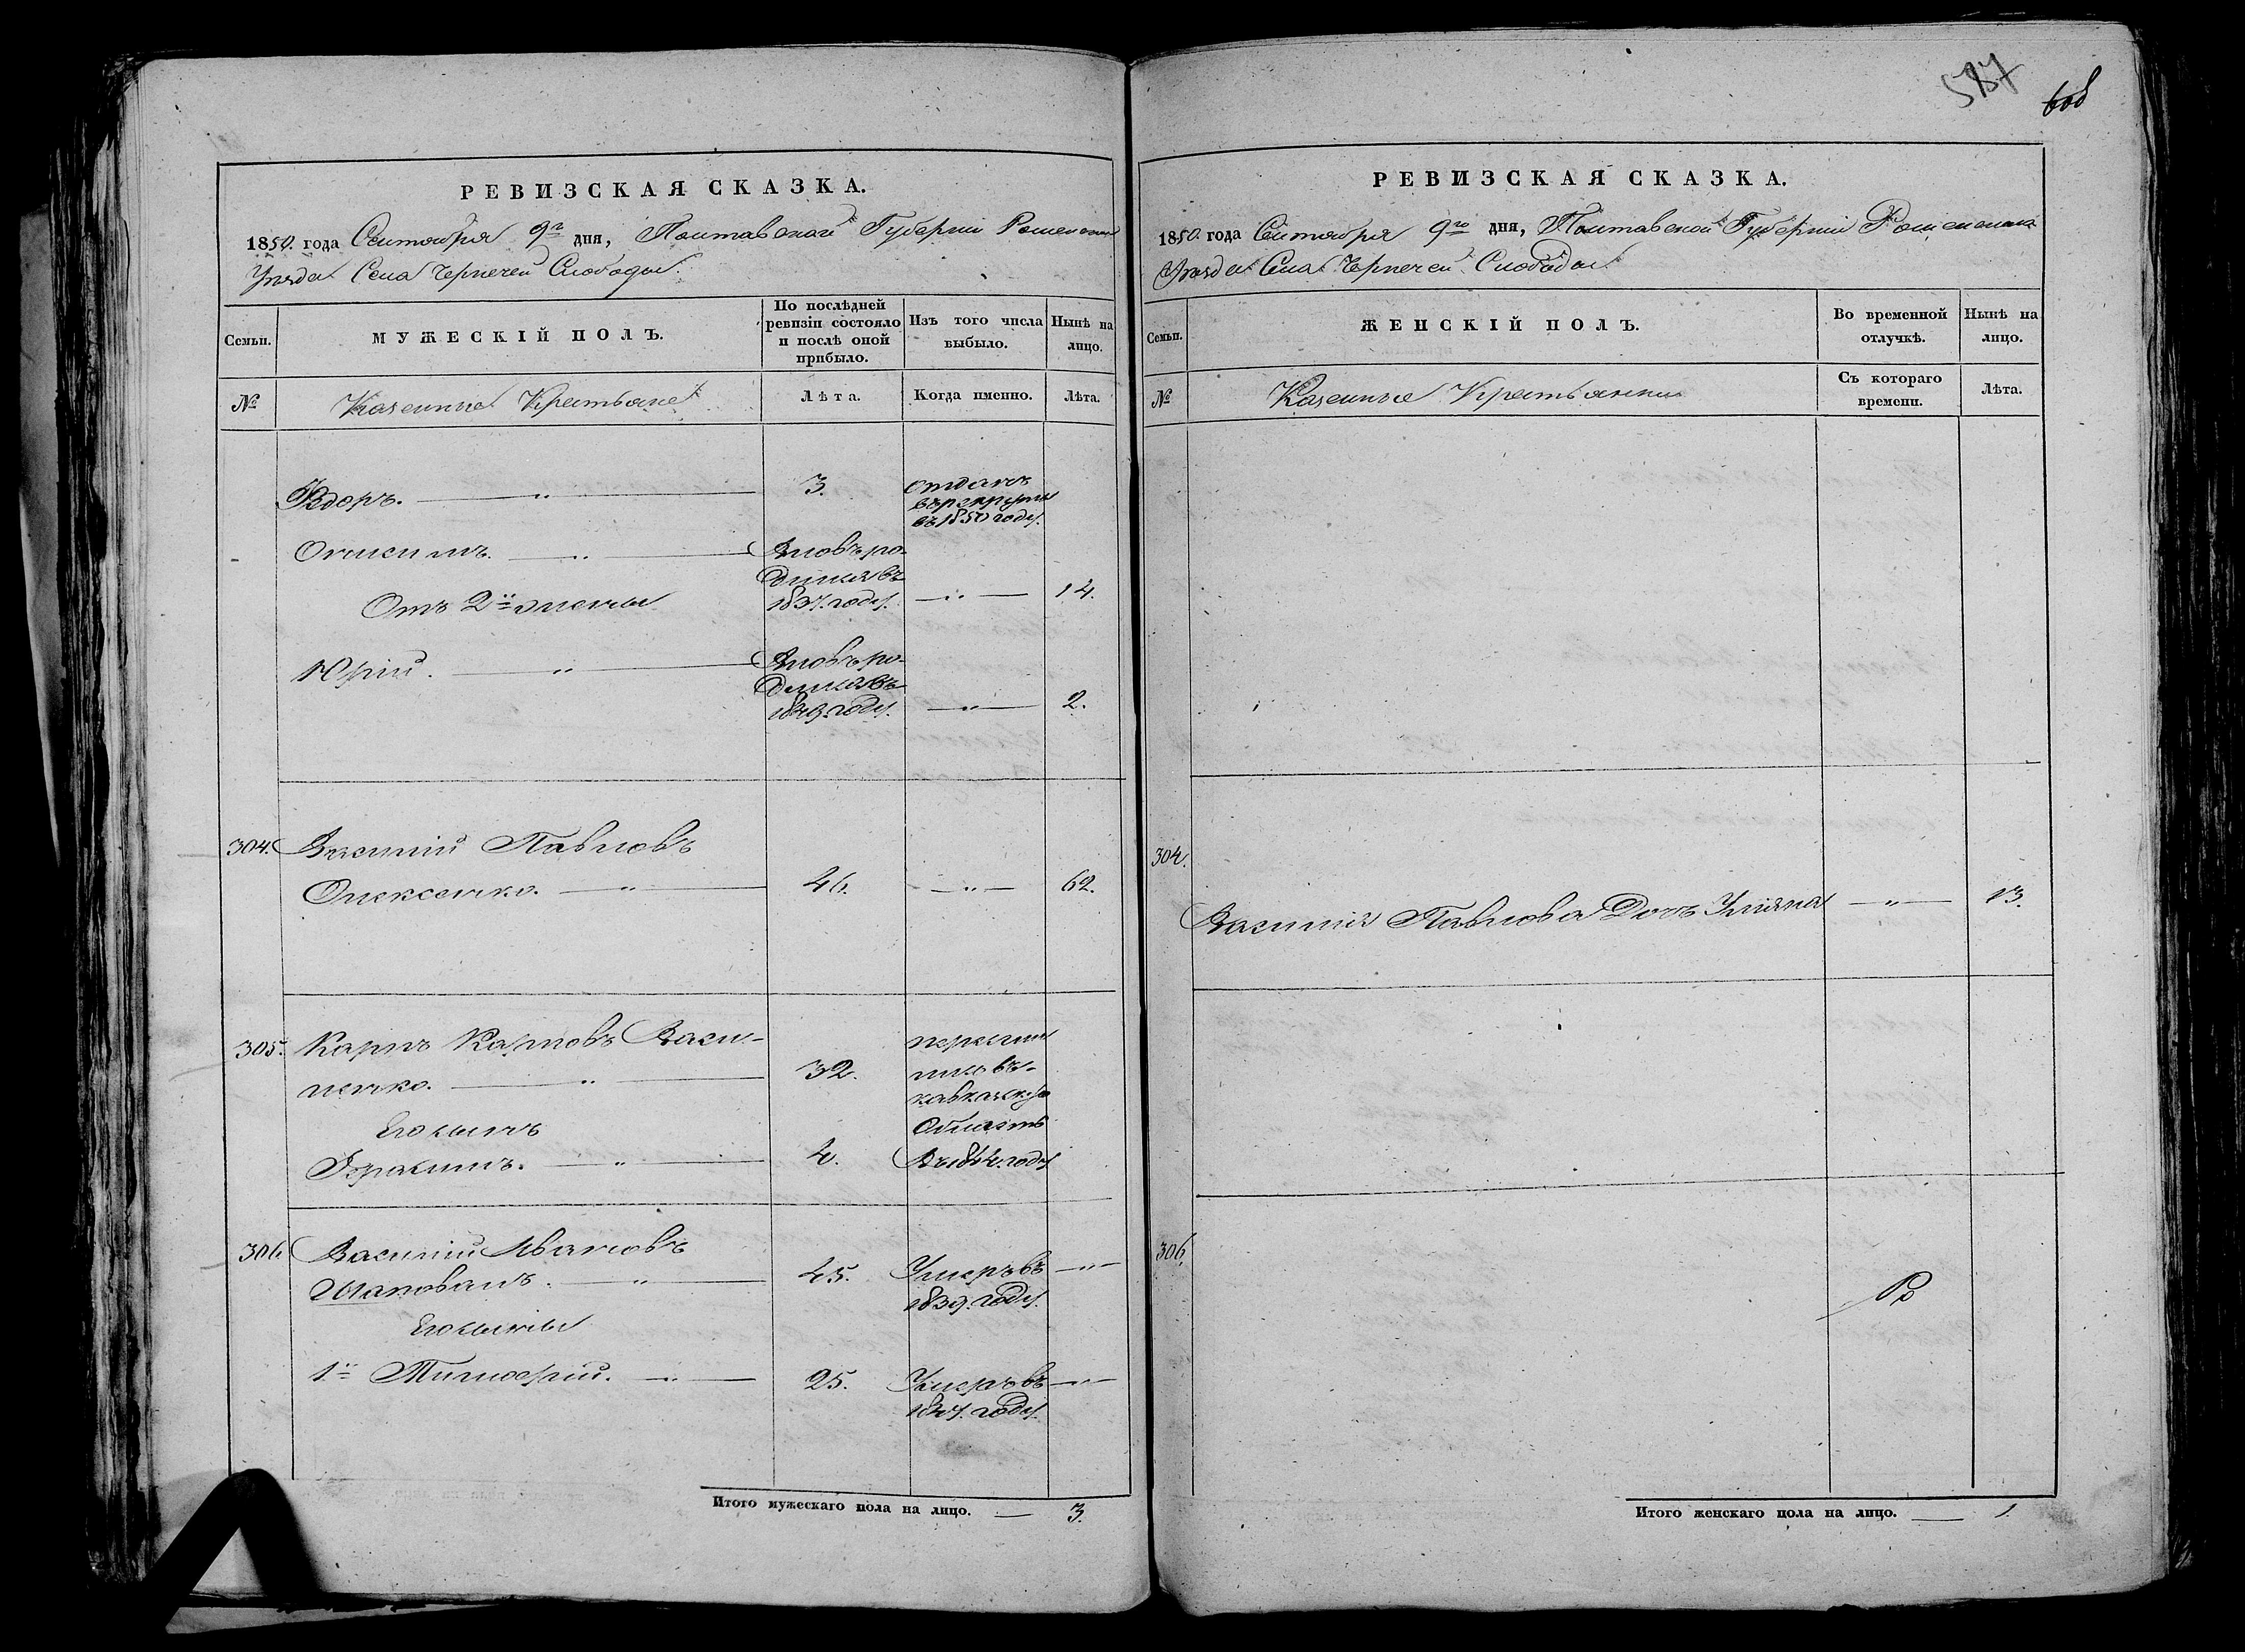 РЕВИЗСКАЯ СКАЗКА.
1850. года Сентября 9го дня, Полтавской Губернии Роменского
Уезда Села Черпечей Слободы.
Семьи.
МУЖЕСКІЙ ПОЛЪ.
По послѣдней ревизіи состояло и послѣ оной прибыло.
Изъ того числа выбыло.
Нынѣ на лицо.
№
Казенные Крестьяне
Лѣта.
Когда именно.
Лѣта.
Ѳедоръ. 3. отданъ
въ рекруты
въ 1850 году.
Онисимъ. Вновь ро-
дился въ
Отъ 2й жены 1837. году. 14.
Юрій. Вновь ро-
дился въ
1849. году. 2.
304. Василій Павловъ
Олексенко. 46. 62.
305. Карпъ Карповъ Васи-
ленко. 32.
Его сынъ
Герасимъ. 4.
переселился въ
кавказскую
Область
Въ 1844. году
306 Василій Ивановъ
Шаповалъ. 45. Умеръ въ
1839. году.
Его сыны
1й Тимофей. 25. Умеръ въ
1847. году.
Итого мужескаго пола на лицо. 3.
587
608
РЕВИЗСКАЯ СКАЗКА.
1850. года Сентября 9го дня, Полтавской Губерніи Роменскаго
Уезда Села Черпечей Слободы
Семьи.
ЖЕНСКІЙ ПОЛЪ.
Во временной отлучкѣ.
Нынѣ на лицо.
№
Казенные Крестьянки
Съ котораго времени.
Лѣта.
304.
Василія Павлова Дочь Уліяна 13.
306.
Итого женскаго пола на лицо. 1.